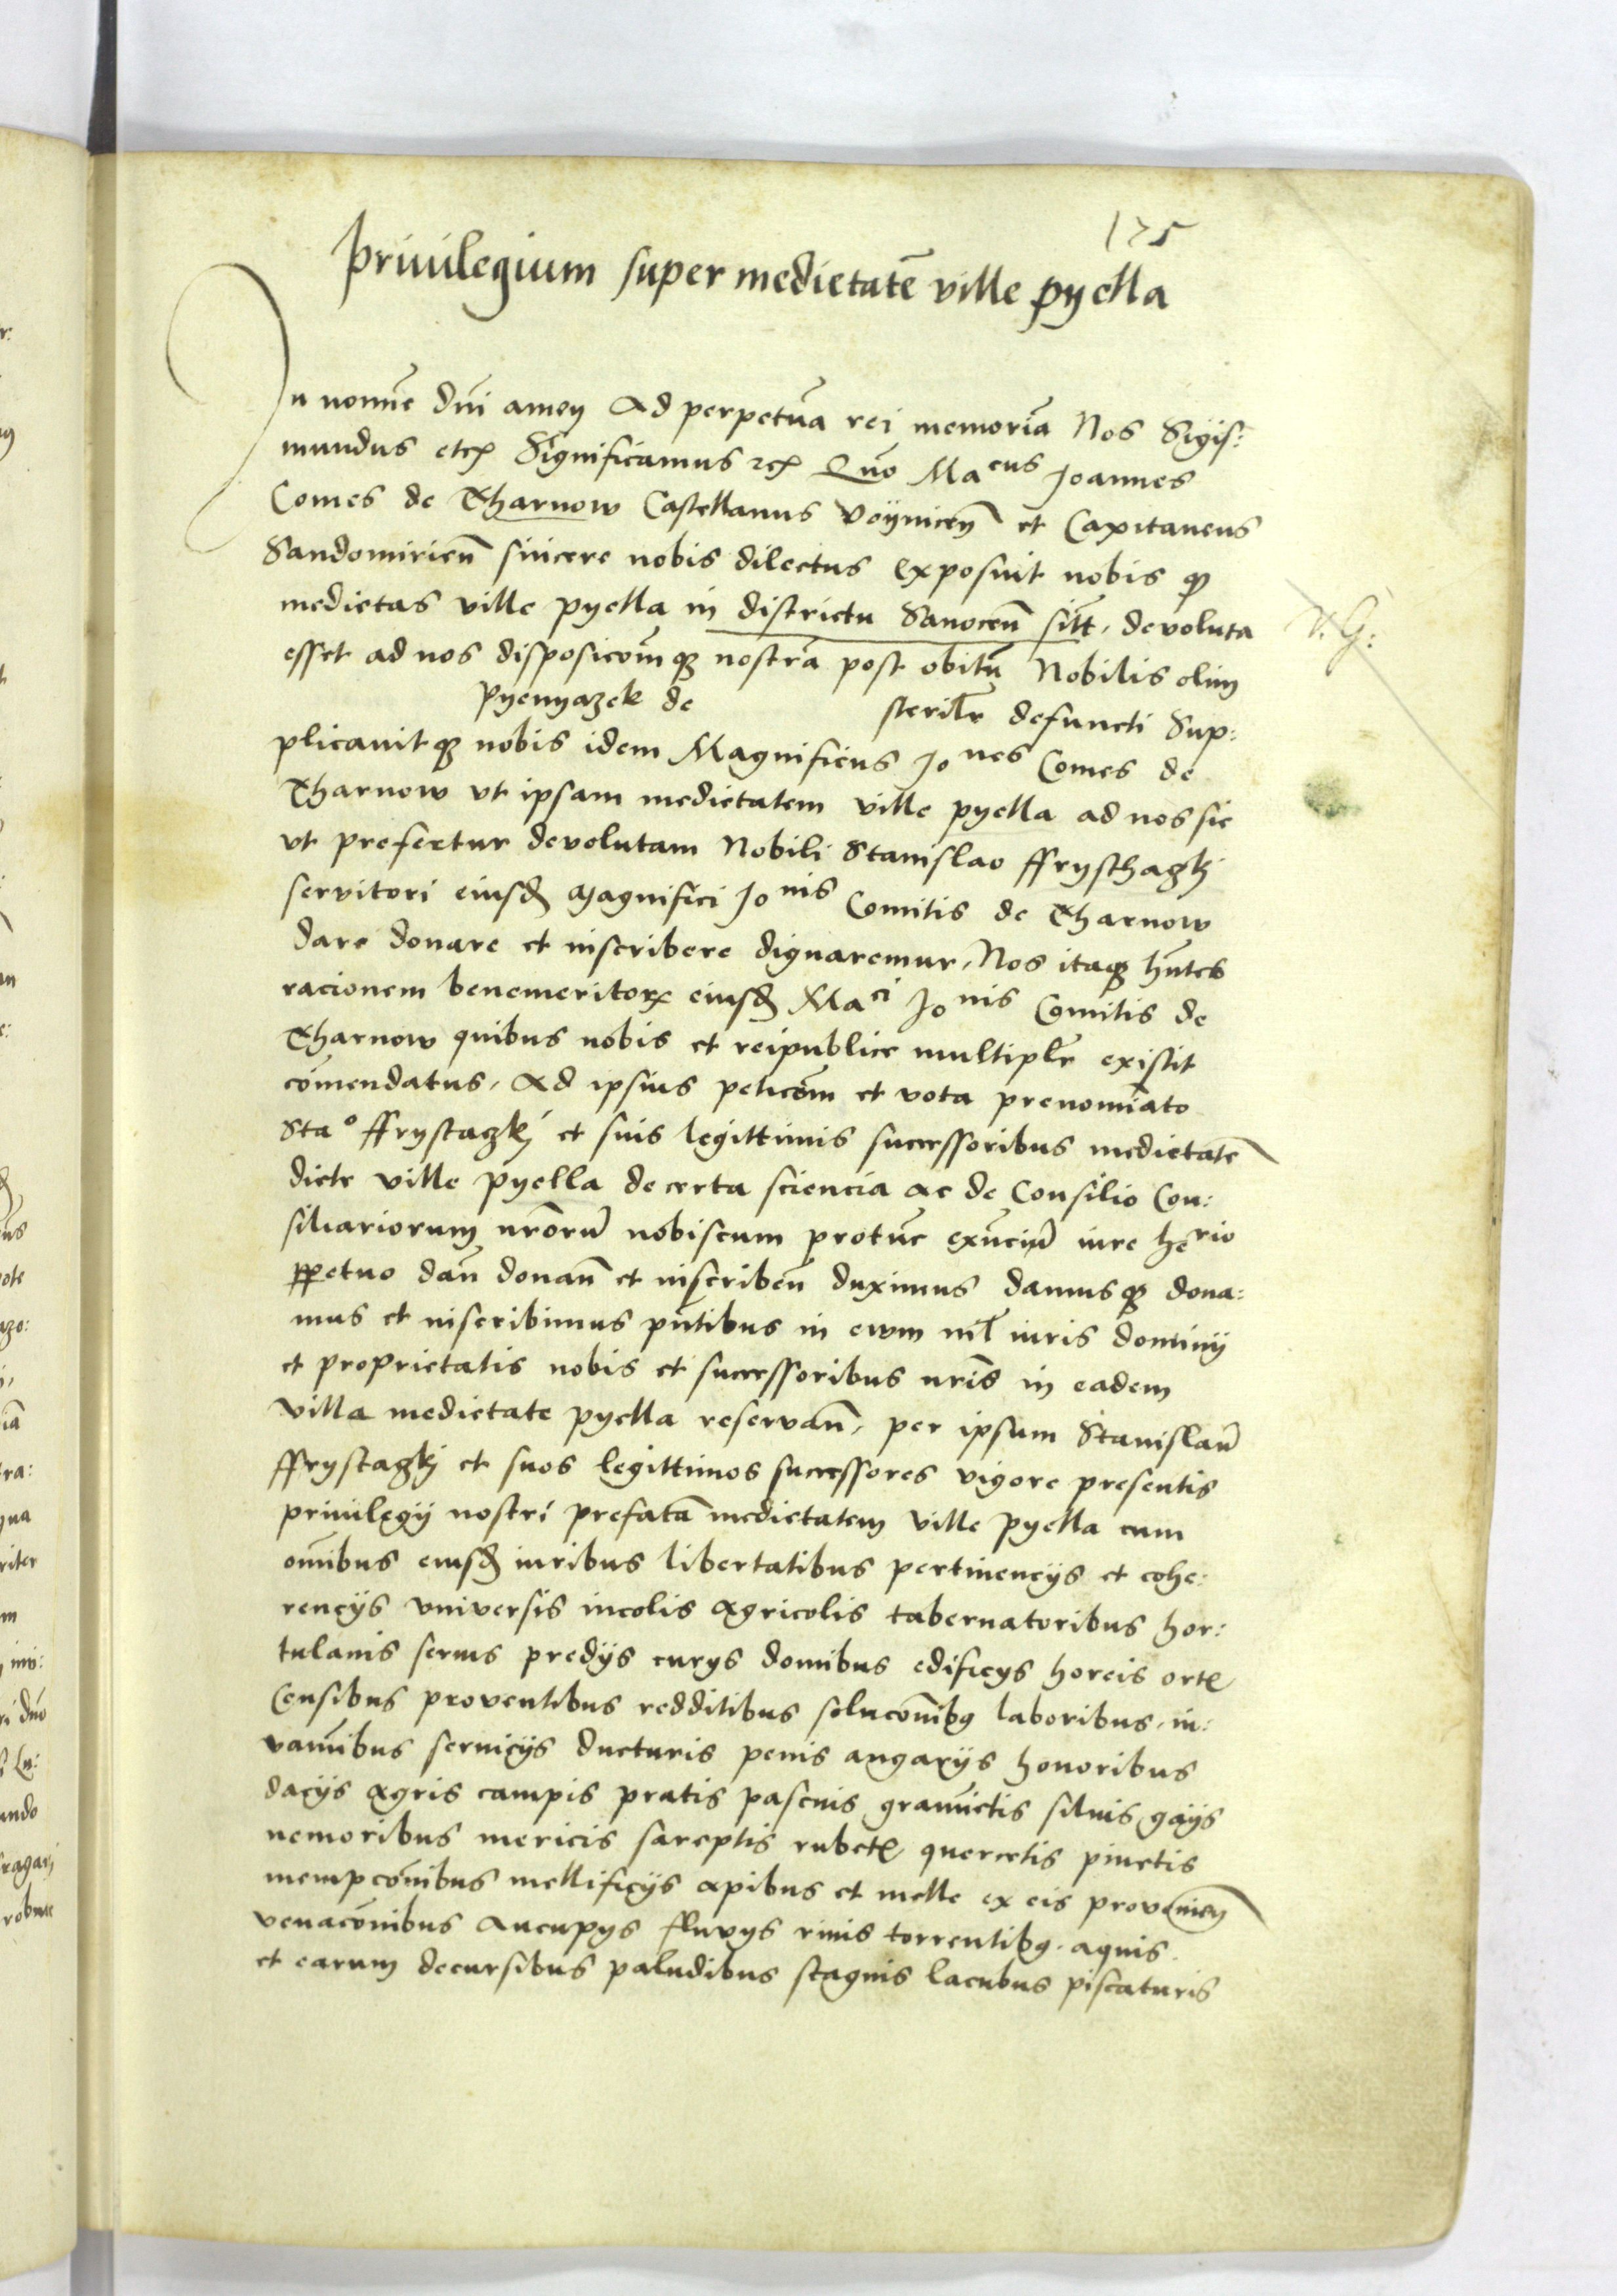 175
Priuilegium super medietatē ville pyella
In nomīe dn̄i amen Ad perpetuā rei memoriā Nos Sigis:
mundus etcꝫ Significamus ꝛcꝫ Quō Ma cus Joannes
Comes de Tharnow Castellanus Voynicen̄ et Capitaneus
Sandomirien̄ sincere nobis dilectus exposuit nobis ꝙ
medietas ville pyella in districtu Sanocen̄ sitt̄, devoluta
V. G:
esset ad nos disposicōmqꝫ nostrā post obitū Nobilis olim
pyenyazek de sterilr̄ defuncti Sup:
plicauitqꝫ nobis idem Magnificus Jo nes Comes de
Tharnow vt ipsam medietatem ville pyella ad nos sic
vt prefertur devolutam Nobili Stanislao ffryschagkj
servitori eiusd̄ Magnifici Jo nis Comitis de Tharnow
dare donare et inscribere dignaremur, Nos itaqꝫ hn̄tes
racionem benemeritorꝝ eiusd̄ Ma ci Jo nis Comitis de
Tharnow quibus nobis et reipublice multiplr̄ existit
com̄endatus, Ad ipsius peticōm et vota prenomīato
Sta o ffrystagkj et suis legittimis successoribus medietatē
dicte ville pyella de certa sciencia ac de Consilio Con:
siliariorum nr̄orū nobiscum protūc exn̄ciū iure he rio
ꝑpetuo dan̄ donan̄ et inscriben̄ duximus damusqꝫ dona:
mus et inscribimus pn̄tibus in ewm nil̄ iuris dominij
et proprietatis nobis et successoribus nr̄is in eadem
villa medietate pyella reservan̄, per ipsum Stanislaū
ffrystagkj et suos legittimos successores vigore presentis
priuilegij nostri prefatā medietatem ville pyella cum
om̄ibus eiusd̄ iuribus libertatibus pertinencijs et cohe:
rencijs vniversis incolis agricolis tabernatoribus hor:
tulanis seruis predijs curijs domibus edificijs horeis ortꝭ
Censibus proventibus redditibus solucōnibꝫ laboribus, iu:
vamībus seruicijs ducturis penis angarijs honoribus
dacijs agris campis pratis pascuis gramīetis siluis gaijs
nemoribus mericis sareptis rubetꝭ quercetis pinetis
mempcōnibus mellificijs apibus et melle ex eis provenien̄
venacōnibus Aucupijs fluvijs riuis torrentibꝫ, aquis
et earum decursibus paludibus stagnis lacubus piscaturis